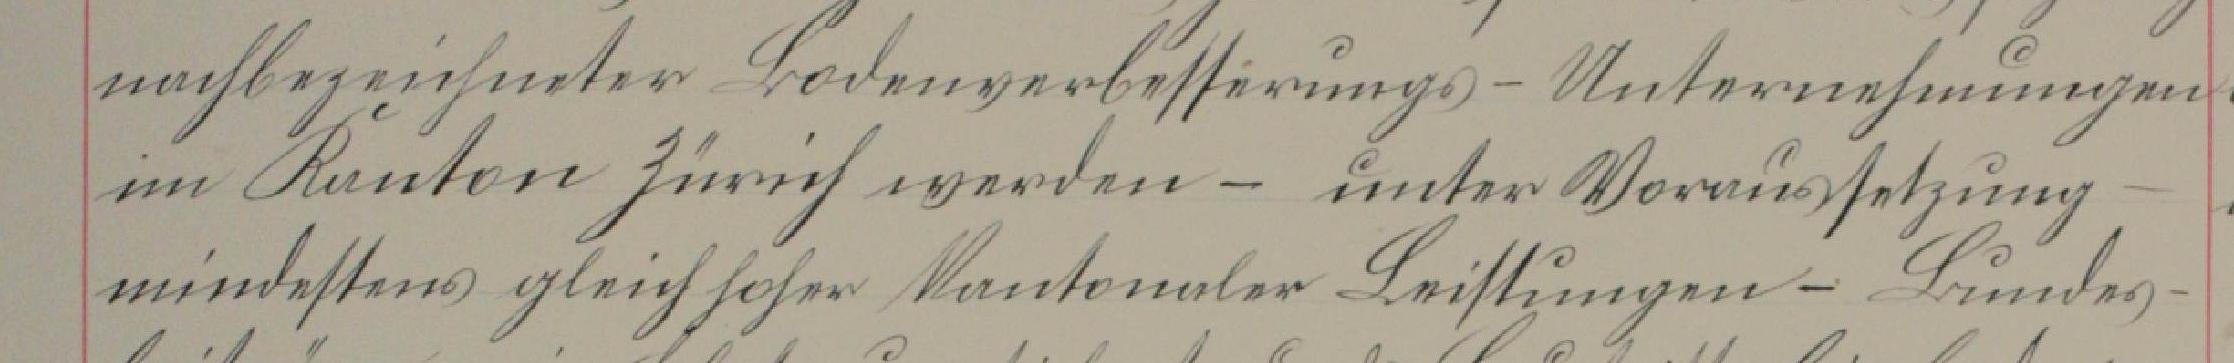 nachbezeichneter Bodenverbesserungs-Unternehmungen
im Kanton Zürich werden – unter Voraussetzung –
mindestens gleich hoher kantonaler Leistungen – Bundes-